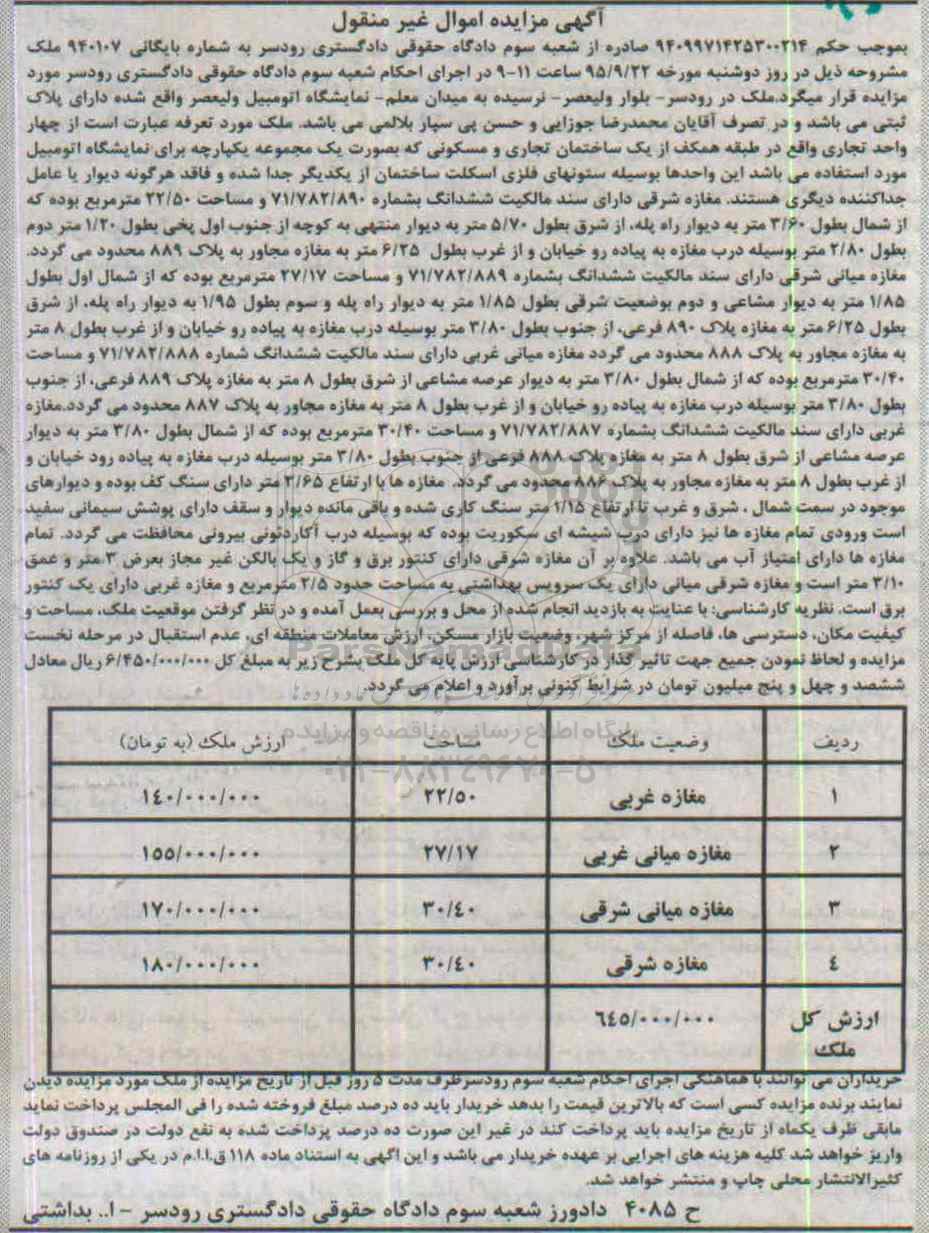 آگهی مزایده اموال غیر منقول
بموجب حکم ۹۴۰۹۹۷۱۴۲۵۳۰۰۲۱۴ صادره از شعبه سوم دادگاه حقوقی دادگستری رودسر به شماره بایگانی ۹۴۰۱۰۷ ملک
مشروحه ذیل در روز دوشنبه مورخه ۹۵/۹/۲۲ ساعت ۱۱-۹ در اجرای احکام شعبه سوم دادگاه حقوقی دادگستری رودسر مورد
مزایده قرار میگرد.ملک در رودسر- بلوار ولیعصر- نرسیده به میدان معلم- نمایشگاه اتومبیل ولیعصر واقع شده دارای پلاک
ثبتی می باشد و در تصرف آقایان محمدرضا جوزایی و حسن پی سپار بلالمی می باشد. ملک مورد تعرفه عبارت است از چهار
واحد تجاری واقع در طبقه همکف از یک ساختمان تجاری و مسکونی که بصورت یک مجموعه یکپارچه برای نمایشگاه اتومبیل
مورد استفاده می باشد این واحدها بوسیله ستونهای فلزی اسکلت ساختمان از یکدیگر جدا شده و فاقد هرگونه دیوار یا عامل
جداکننده دیگری هستند. مغازه شرقی دارای سند مالکیت ششدانگ بشماره ۷۱/۷۸۲/۸۹۰ و مساحت ۲۲/۵۰ مترمربع بوده که
از شمال بطول ۳/۶۰ متر به دیوار راه پله، از شرق بطول ۵/۷۰ متر به دیوار منتهی به کوچه از جنوب اول پخی بطول ۱/۲۰ متر دوم
بطول ۲/۸۰ متر بوسیله درب مغازه به پیاده رو خیابان و از غرب بطول ۶/۲۵ متر به مغازه مجاور به پلاک ۸۸۹ محدود می گردد.
مغازه میانی شرقی دارای سند مالکیت ششدانگ بشماره ۷۱/۷۸۲/۸۸۹ و مساحت ۲۷/۱۷ مترمربع بوده که از شمال اول بطول
۱/۸۵ متر به دیوار مشاعی و دوم بوضعیت شرقی بطول ۱/۸۵ متر به دیوار راه پله و سوم بطول ۱/۹۵ به دیوار راه پله، از شرق
بطول ۶/۲۵ متر به مغازه پلاک ۸۹۰ فرعی، از جنوب بطول ۳/۸۰ متر بوسیله درب مغازه به پیاده رو خیابان و از غرب بطول ۸ متر
به مغازه مجاور به پلاک ۸۸۸ محدود می گردد مغازه میانی غربی دارای سند مالکیت ششدانگ شماره ۷۱/۷۸۲/۸۸۸ و مساحت
۳۰/۴۰ مترمربع بوده که از شمال بطول ۳/۸۰ متر به دیوار عرصه مشاعی از شرق بطول ۸ متر به مغازه پلاک ۸۸۹ فرعی، از جنوب
بطول ۳/۸۰ متر بوسیله درب مغازه به پیاده رو خیابان و از غرب بطول ۸ متر به مغازه مجاور به پلاک ۸۸۷ محدود می گردد.مغازه
غربی دارای سند مالکیت ششدانگ بشماره ۷۱/۷۸۲/۸۸۷ و مساحت ۳۰/۴۰ مترمربع بوده که از شمال بطول ۳/۸۰ متر به دیوار
عرصه مشاعی از شرق بطول ۸ متر به مغازه پلاک ۸۸۸ فرعی از جنوب بطول ۳/۸۰ متر بوسیله درب مغازه به پیاده رود خیابان و
از غرب بطول ۸ متر به مغازه مجاور به پلاک ۸۸۶ محدود می گردد. مغازه ها با ارتفاع ۲/۶۵ متر دارای سنگ کف بوده و دیوارهای
موجود در سمت شمال ، شرق و غرب تا ارتفاع ۱/۱۵ متر سنگ کاری شده و باقی مانده دیوار و سقف دارای پوشش سیمانی سفید
است ورودی تمام مغازه ها نیز دارای درب شیشه ای سکوریت بوده که بوسیله درب آکاردئونی بیرونی محافظت می گردد. تمام
مغازه ها دارای امتیاز آب می باشد. علاوه بر آن مغازه شرقی دارای کنتور برق و گاز و یک بالکن غیر مجاز بعرض ۳ متر و عمق
۳/۱۰ متر است و مغازه شرقی میانی دارای یک سرویس بهداشتی به مساحت حدود ۲/۵ مترمربع و مغازه غربی دارای یک کنتور
برق است. نظریه کارشناسی: با عنایت به بازدید انجام شده از محل و بررسی بعمل آمده و در نظر گرفتن موقعیت ملک، مساحت و
کیفیت مکان، دسترسی ها، فاصله از مرکز شهر، وضعیت بازار مسکن، ارزش معاملات منطقه ای، عدم استقبال در مرحله نخست
مزایده و لحاظ نمودن جمیع جهت تاثیر گذار در کارشناسی ارزش پایه کل ملک بشرح زیر به مبلغ کل ۶/۴۵۰/۰۰۰/۰۰۰ ریال معادل
ششصد و چهل و پنج میلیون تومان در شرایط کنونی برآورد و اعلام می گردد.
ParsNamadData
پایگاه اطلاع رسانی مناقصه و مزایده
۰۲۱-۸۸۳۴۹۶۷۰-۵
ردیف وضعیت ملک مساحت ارزش ملک (به تومان)
۱ مغازه غربی ۲۲/۵۰ ۱۴۰/۰۰۰/۰۰۰
۲ مغازه میانی غربی ۲۷/۱۷ ۱۵۵/۰۰۰/۰۰۰
۳ مغازه میانی شرقی ۳۰/٤۰ ۱۷۰/۰۰۰/۰۰۰
٤ مغازه شرقی ۳۰/٤۰ ۱۸۰/۰۰۰/۰۰۰
ارزش کل ملک ٦٤٥/۰۰۰/۰۰۰
خریداران می توانند با هماهنگی اجرای احکام شعبه سوم رودسرظرف مدت ۵ روز قبل از تاریخ مزایده از ملک مورد مزایده دیدن
نمایند برنده مزایده کسی است که بالاترین قیمت را بدهد خریدار باید ده درصد مبلغ فروخته شده را فی المجلس پرداخت نماید
مابقی ظرف یکماه از تاریخ مزایده باید پرداخت کند در غیر این صورت ده درصد پرداخت شده به نفع دولت در صندوق دولت
واریز خواهد شد کلیه هزینه های اجرایی بر عهده خریدار می باشد و این اگهی به استناد ماده ۱۱۸ ق.ا.ا.م در یکی از روزنامه های
کثیرالانتشار محلی چاپ و منتشر خواهد شد.
ح ۴۰۸۵ دادورز شعبه سوم دادگاه حقوقی دادگستری رودسر - ا.. بداشتی